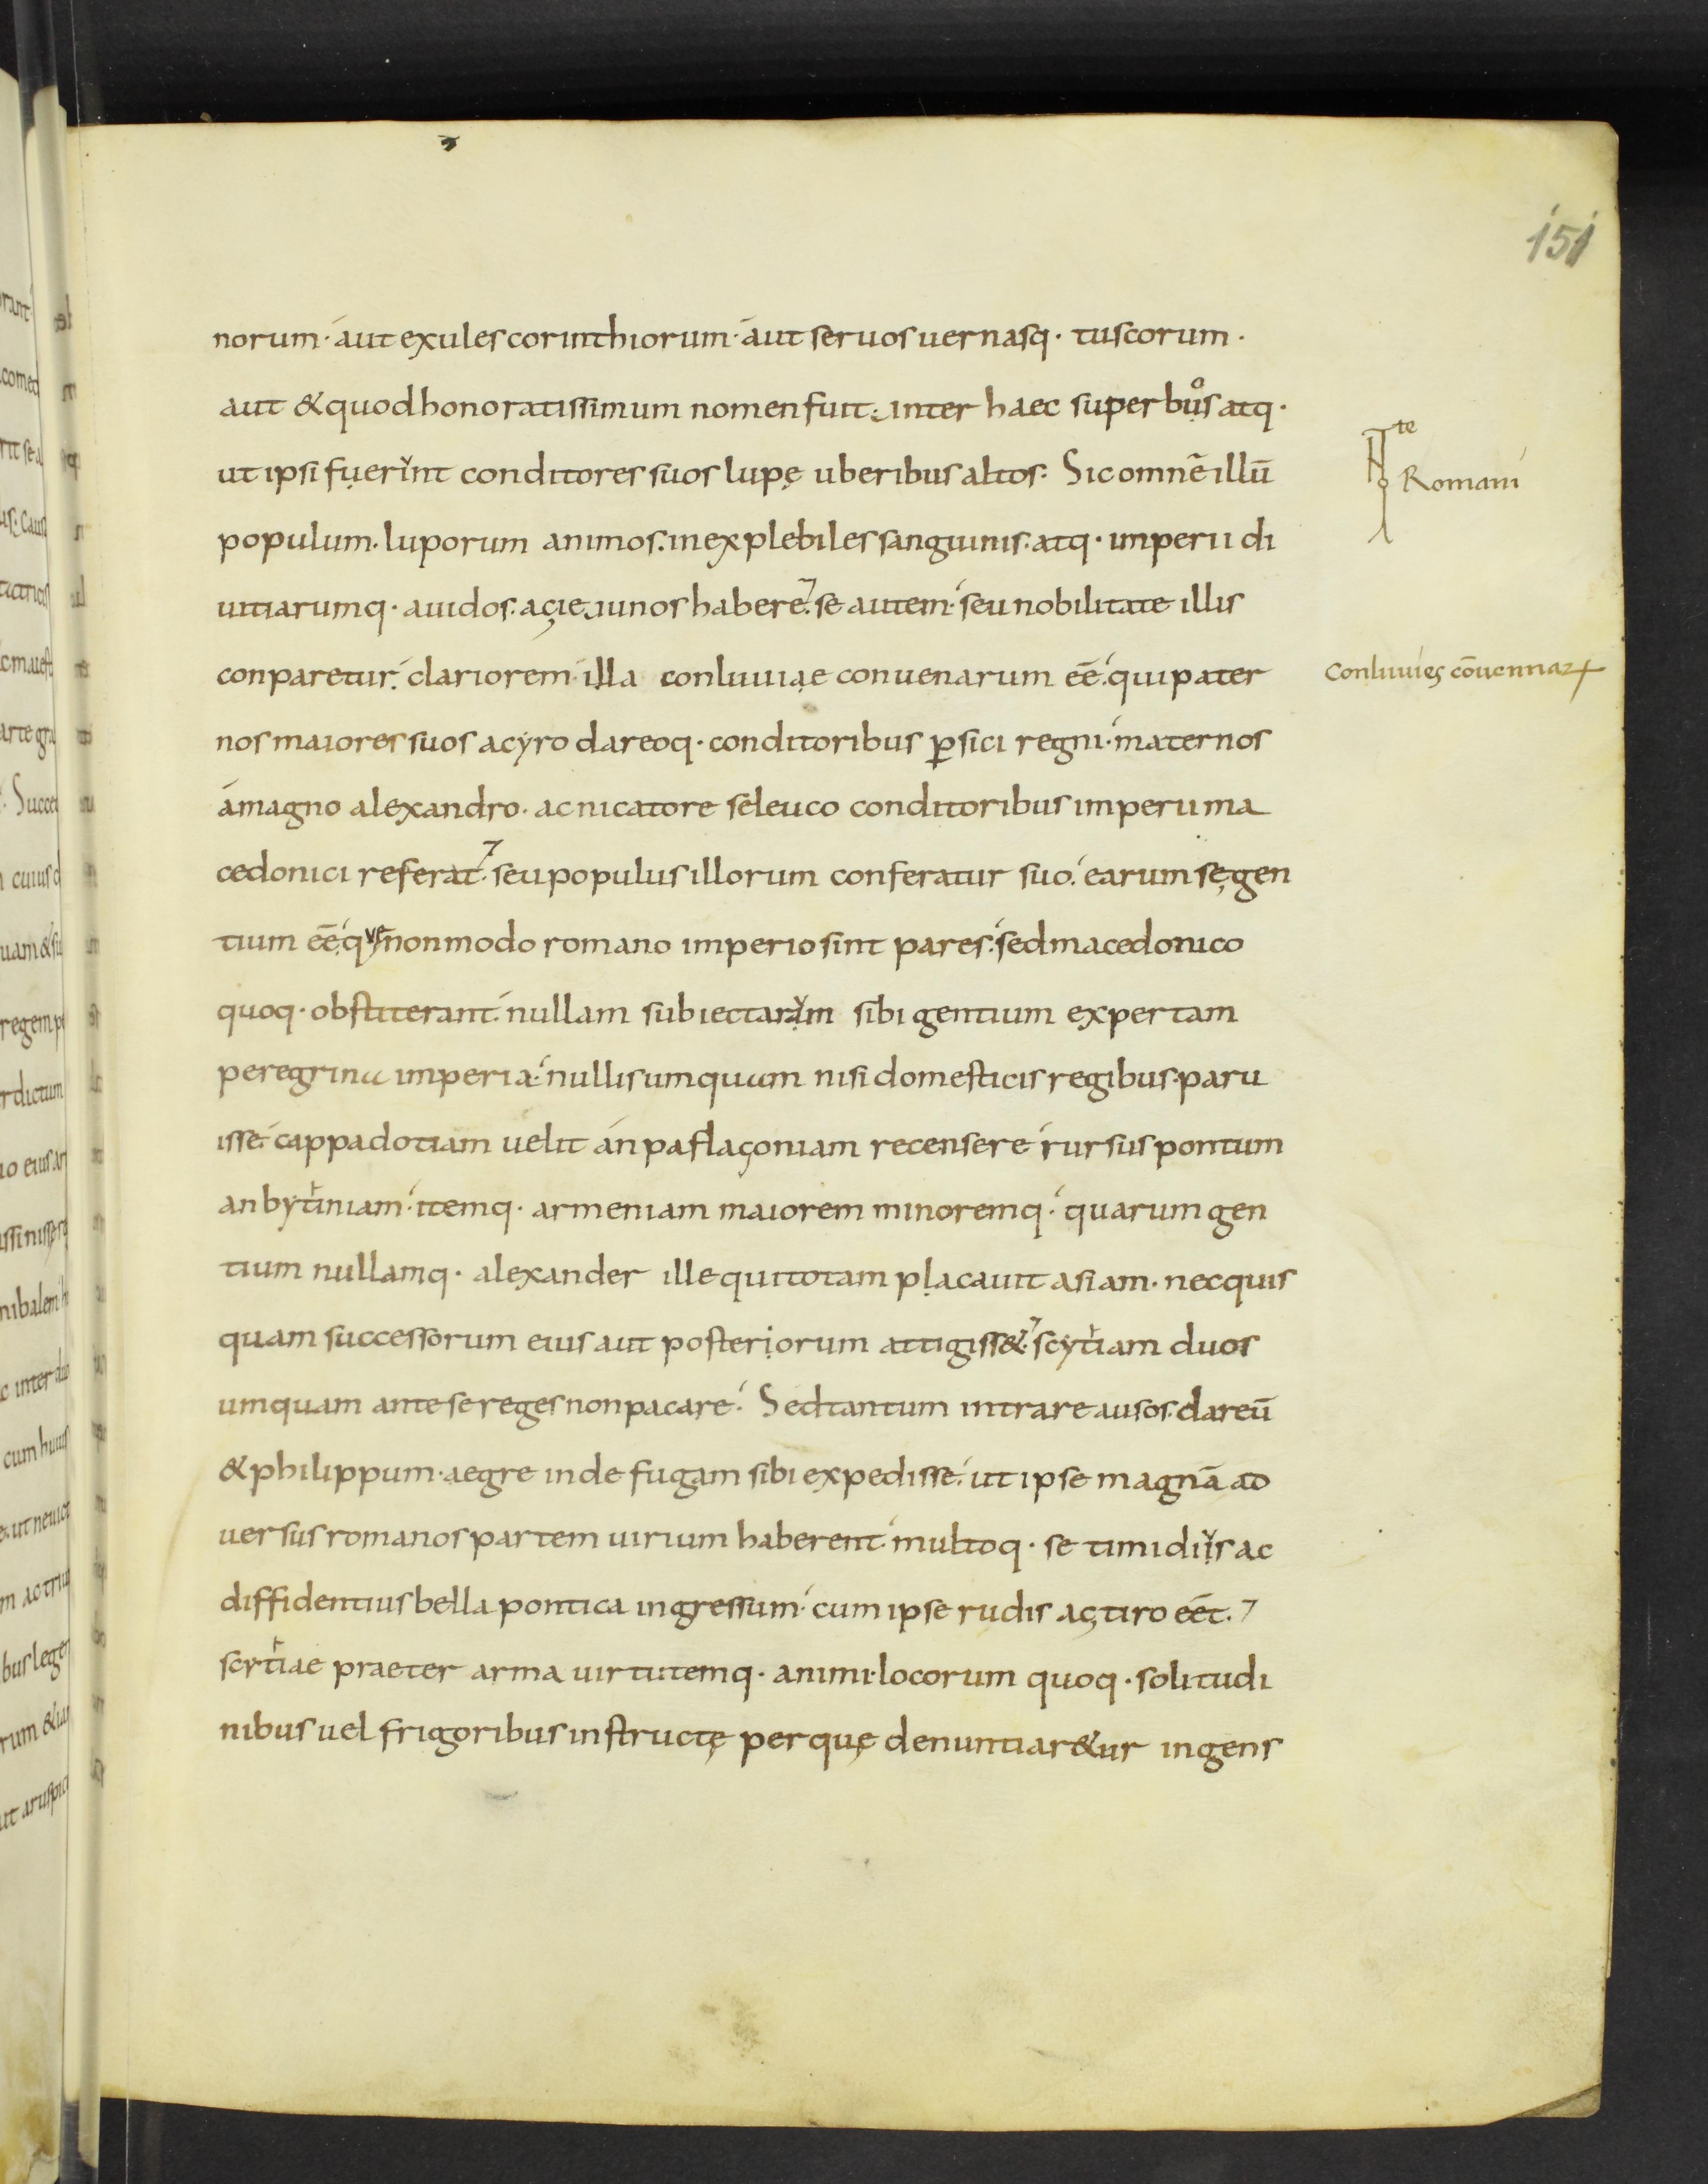 151
norum· aut exules corinthiorum· aut seruos uernasq· tuscorum·
aut & quod honoratissimum nomen fuit; inter haec superbus atq·
ut ipsi fuerint conditores suos lupę uberibus altos· Sic omnē illū
populum· luporum animos· inexplebiles sanguinis· atq· imperii di
uitiarumq· auidos· acieiunos habere· se autem· seu nobilitate illis
conparetur· clariorem illa conluuiae conuenarum eē· qui pater
nos maiores suos acyro dareoq· conditoribus ꝑsici regni· maternos
amagno alexandro· ac nicatore seleuco conditoribus imperii ma
cedonici referat· seu populus illorum conferatur suo· earum se gen
tium eē· que non modo romano imperio sint pares· sed macedonico
quoq· obstiterant· nullam subiectarum sibi gentium expertam
peregrina imperia· nullis umquam nisi domesticis regibus· paru
isse· cappadotiam uelit an paflaçoniam recensere rursus pontum
an bytiniam· itemq· armeniam maiorem minoremq· quarum gen
tium nullamq· alexander ille qui totam placauit asiam· nec quis
quam successorum eius aut posteriorum attigiss&· scytiam duos
umquam ante se reges non pacare· Sed tantum intrare ausos· dareū
& philippum· aegre inde fugam sibi expedisse· ut ipse magnā ad
uersus romanos partem uirium haberent· multoq· se timidius ac
diffidentius bella pontica ingressum· cum ipse rudis ac tiro eēt·
scytiae praeter arma uirtutemq· animi· locorum quoq· solitudi
nibus uel frigoribus instructę per quę denuntiar&ur ingens
te
Romani
Conluuies cōuennaꝝ